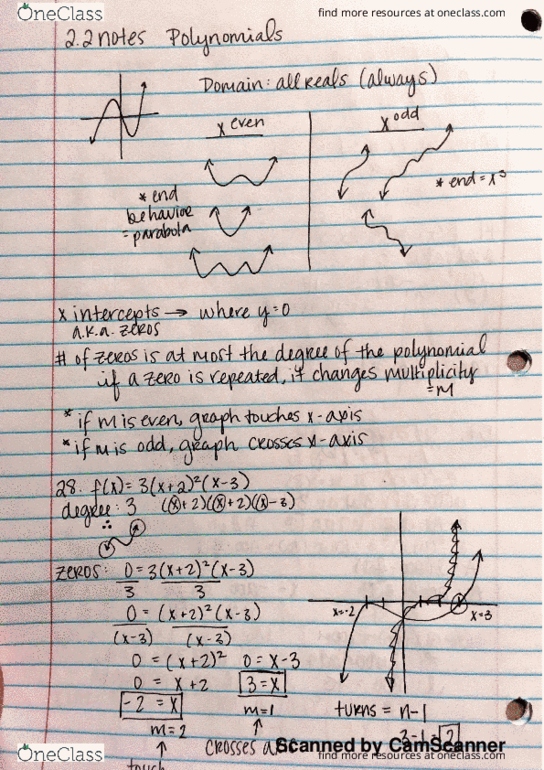 OneClass
find more resources at oneclass.com
2.2 notes Polynomials
Domain: all reals (always)
x even
x odd
* end behavior = parabola
* end = x³
x intercepts → where y=0
a.k.a. zeros
# of zeros is at most the degree of the polynomial
if a zero is repeated, it changes multiplicity
=M
* if m is even, graph touches x-axis
* if m is odd, graph crosses x-axis
28. f(x) = 3(x+2)²(x-3)
degree: 3 (x+2)(x+2)(x-3)
∴
zeros: 0 = 3(x+2)²(x-3)
3 3
0 = (x+2)²(x-3)
(x-3) (x-3)
x=-2
x=3
0 = (x+2)² 0 = x-3
0 = x+2 3 = x
-2 = x m=1
m=2
turns = n-1
3-1=2
crosses
touch
Scanned by CamScanner
OneClass
find more resources at oneclass.com